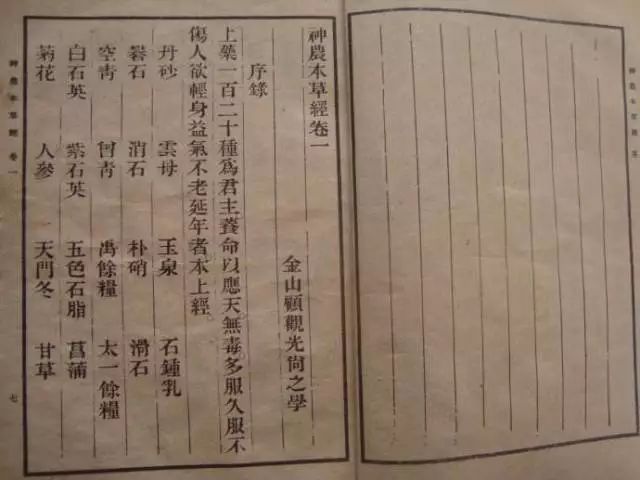 神農本草經 序
神農本草經卷一
金山顧觀光尚之學
序錄
上藥一百二十種爲君主養命以應天無毒多服久服不
傷人欲輕身益氣不老延年者本上經
丹砂 雲母 玉泉 石鍾乳
礬石 消石 朴硝 滑石
空青 曾青 禹餘糧 太一餘糧
白石英 紫石英 五色石脂 菖蒲
菊花 人參 天門冬 甘草
神農本草經 卷一 七